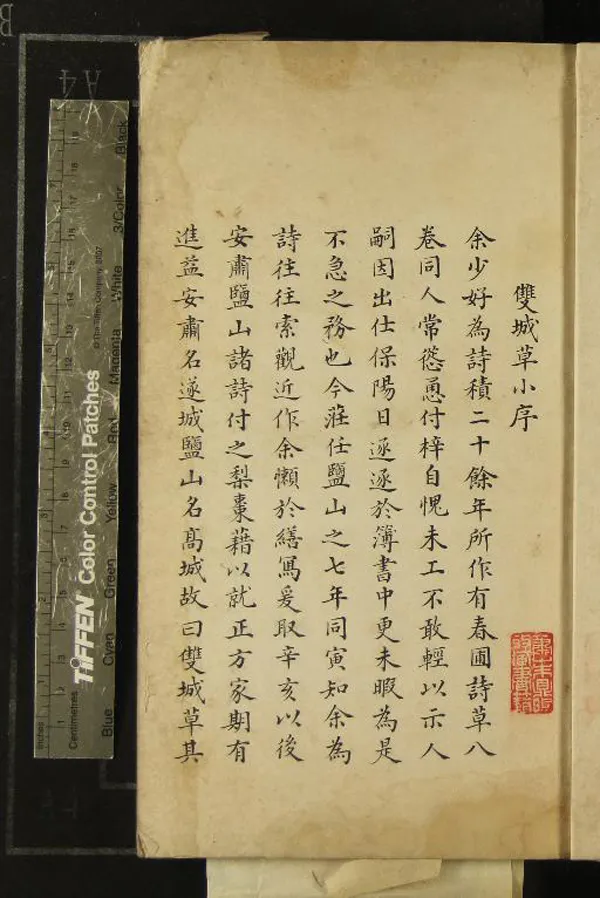 雙城草小序
余少好為詩積二十餘年所作有春圃詩草八
卷同人常慫恿付梓自愧未工不敢輕以示人
嗣因出仕保陽日逐逐於簿書中更未暇為是
不急之務也今蒞任鹽山之七年同寅知余為
詩往往索觀近作余懶於繕寫爰取辛亥以後
安肅鹽山諸詩付之梨棗藉以就正方家期有
進益安肅名遂城鹽山名高城故曰雙城草其
B
A4
inches
Centimetres
TIFFEN Color Control Patches
© The Tiffen Company, 2007
Blue Cyan Green Yellow Red Magenta White 3/Color Black